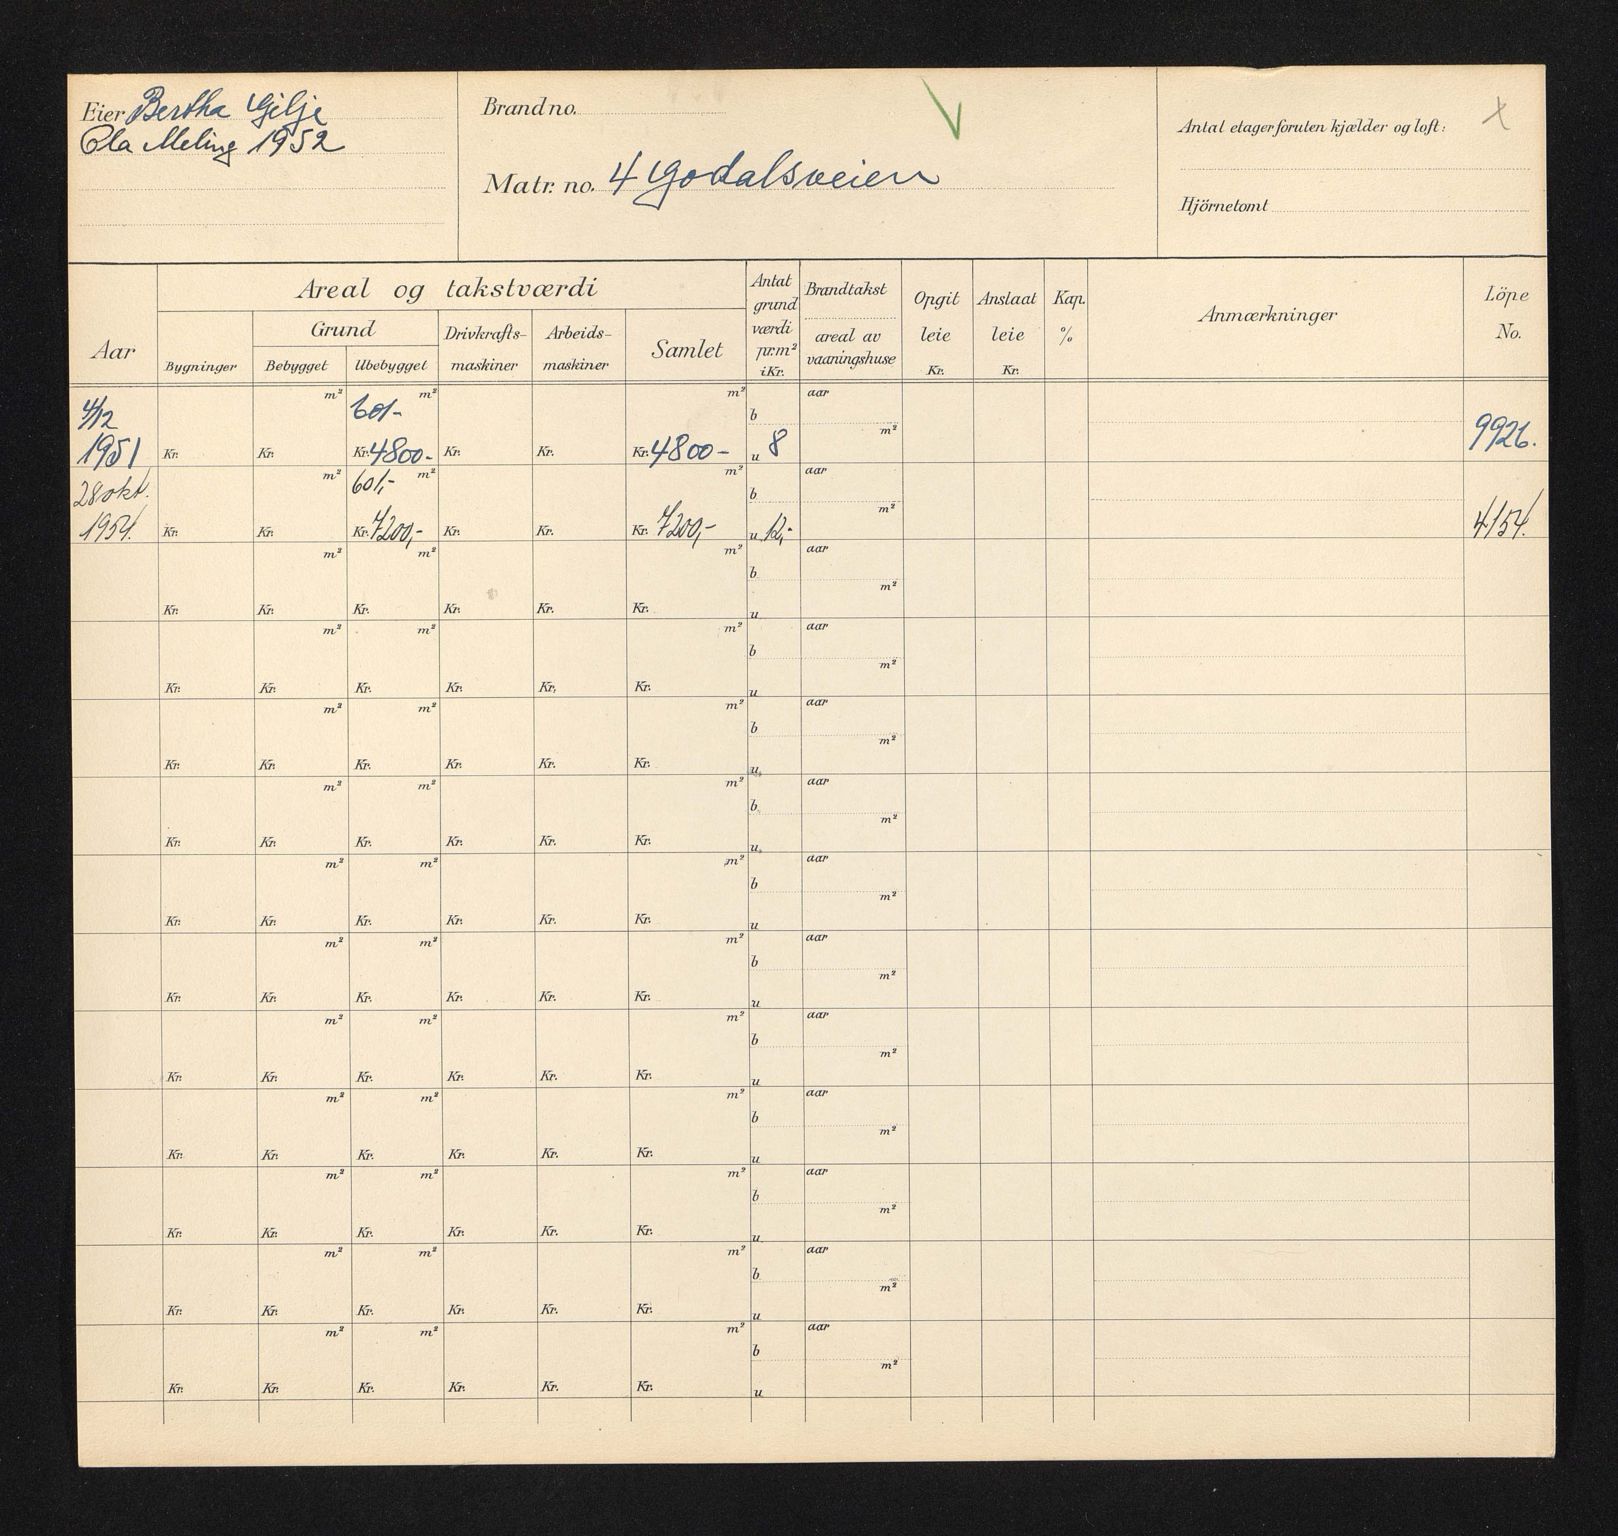 Eier Bertha Gilje
Ola Meling 1952
Brand no.
Matr. no. 4 Godalsveien
Antal etager foruten kjælder og loft: x
Hjörnetomt
Aar
Areal og takstværdi
Bygninger
Grund
Bebygget
Ubebygget
Drivkrafts-
maskiner
Arbeids-
maskiner
Samlet
Antat
grund
værdi
pr.m²
i Kr.
Brandtakst
areal av
vaaningshuse
Opgit
leie
Kr.
Anslaat
leie
Kr.
Kap.
%
Anmærkninger
Löpe
No.
4/12 m² 601- m² m² b aar
1951 Kr. Kr. Kr. 4800- Kr. Kr. Kr. 4800- u 8 m² 9926.
28 okt. m² 601,- m² m² b aar
1954. Kr. Kr. Kr. 7200,- Kr. Kr. Kr. 7200,- u 12,- m² 4154.
m² m² m² b aar
Kr. Kr. Kr. Kr. Kr. Kr. u m²
m² m² m² b aar
Kr. Kr. Kr. Kr. Kr. Kr. u m²
m² m² m² b aar
Kr. Kr. Kr. Kr. Kr. Kr. u m²
m² m² m² b aar
Kr. Kr. Kr. Kr. Kr. Kr. u m²
m² m² m² b aar
Kr. Kr. Kr. Kr. Kr. Kr. u m²
m² m² m² b aar
Kr. Kr. Kr. Kr. Kr. Kr. u m²
m² m² m² b aar
Kr. Kr. Kr. Kr. Kr. Kr. u m²
m² m² m² b aar
Kr. Kr. Kr. Kr. Kr. Kr. u m²
m² m² m² b aar
Kr. Kr. Kr. Kr. Kr. Kr. u m²
m² m² m² b aar
Kr. Kr. Kr. Kr. Kr. Kr. u m²
m² m² m² b aar
Kr. Kr. Kr. Kr. Kr. Kr. u m²